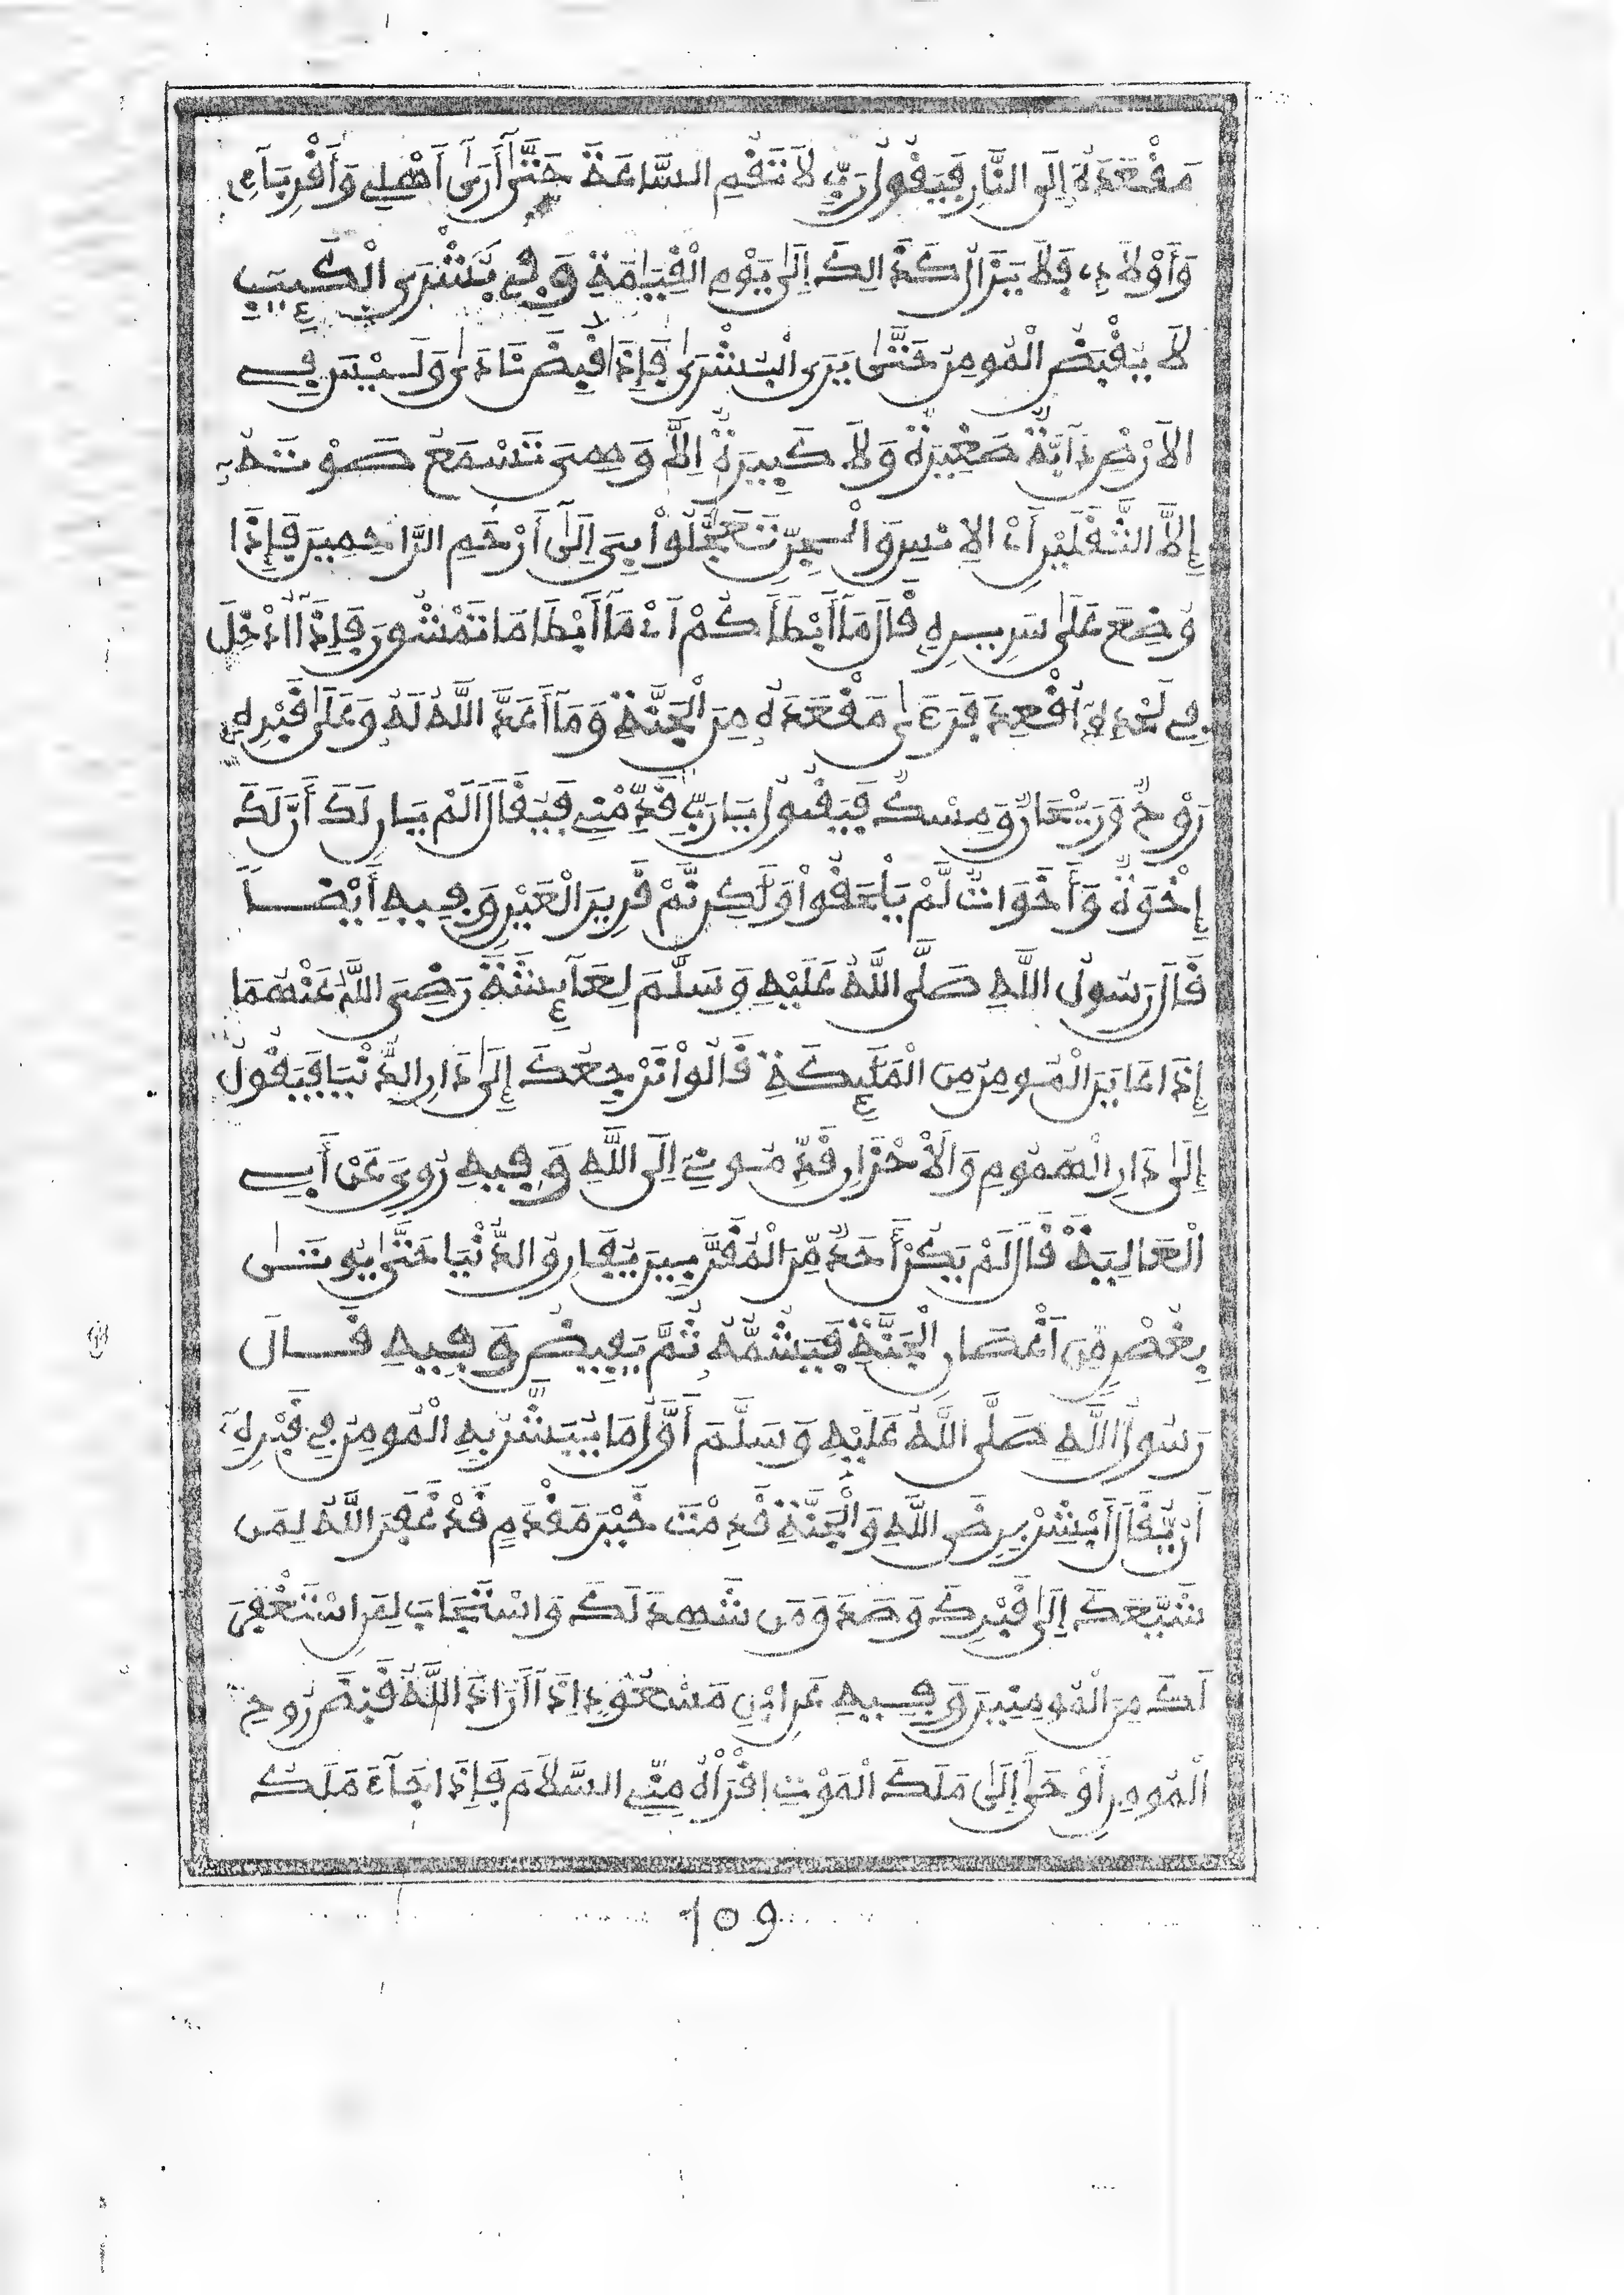 مَقْعَدَهُ إِلَى النَّارِ فَيَقُولُ رَبِّ لَا تُقِمِ السَّاعَةَ حَتَّى أَرَى أَهْلِي وَأَقْرِبَاءِي
وَأَوْلَادِي فَلَا يَزَالُ كَذَالِكَ إِلَى يَوْمِ الْقِيَامَةِ وَفِي بُشْرَى الْكَئِيبِ
لَا يُقْبَضُ الْمُومِنُ حَتَّى يَرَى الْبُشْرَى فَإِذَا قُبِضَ نَادَى وَلَيْسَ فِي
الَارْضِ دَآبَّةٌ صَغِيرَةٌ وَلَا كَبِيرَةٌ إِلَّا وَهِيَ تَسْمَعُ صَوْتَهُ
إِلَّا الثَّقَلَيْنِ أَيْ الِانْسِ وَالْجِنِّ تَعَجَّلُواْ بِي إِلَى أَرْحَمِ الرَّاحِمِينَ فَإِذَا
وُضِعَ عَلَى سَرِيرِهِ قَالَ مَا أَبْطَأَكُمْ أَيْ مَا أَبْطَا مَا تَمْشُونَ فَإِذَا ادْخِلَ
فِي لَحْدِهِ أُقْعِدَ فَرَءَى مَقْعَدَهُ مِنَ الْجَنَّةِ وَمَا أَعَدَّ اللَّهُ لَهُ وَعَلَى قَبْرِهِ
رَوْحٌ وَرَيْحَانٌ وَمِسْكٌ فَيَقُولُ يَا رَبِّ قَدِّمْنِي فَيُقَالُ أَلَمْ يَانِ لَكَ أَنَّ لَكَ
إِخْوَةٌ وَأَخَوَاتٌ لَّمْ يَلْحَقُواْ وَلَكِن نَّمْ قَرِيرَ الْعَيْنِ وَفِيهِ أَيْضاً
قَالَ رَسُولُ اللَّهِ صَلَّى اللَّهُ عَلَيْهِ وَسَلَّمَ لِعَآئِشَةَ رَضِيَ اللَّهُ عَنْهُمَا
إِذَا عَايَنَ الْمُومِنُ مِنَ الْمَلَئِكَةِ قَالُواْ نَرْجِعُكَ إِلَى دَارِ الدُّنْيَا فَيَقُولُ
إِلَى دَارِ الْهُمُومِ وَالَاحْزَانِ قَدِّمُونِي إِلَى اللَّهِ وَفِيهِ رُوِيَ عَنْ أَبِي
الْعَالِيَةِ قَالَ لَمْ يَكُنْ أَحَدٌ مِّنَ الْمُقَرَّبِينَ يُفَارِقُ الدُّنْيَا حَتَّى يُوتَى
بِغُصْنٍ مِّنَ أَغْصَانِ الْجَنَّةِ فَيَشُمُّهُ ثُمَّ يَفِيضُ وَفِيهِ قَالَ
رَسُولُ اللَّهِ صَلَّى اللَّهُ عَلَيْهِ وَسَلَّمَ أَوَّلُ مَا يُبَشَّرُ بِهِ الْمُومِنُ فِي قَبْرِهِ
أَن يُّقَالَ أَبْشِرْ بِرِضَى اللَّهِ وَالْجَنَّةِ قَدِمْتَ خَيْرَ مَقْدَمٍ قَدْ غَفَرَ اللَّهُ لِمَن
شَيَّعَكَ إِلَى قَبْرِكَ وَصَدَّقَ مَن شَهِدَ لَكَ وَاسْتَجَابَ لِمَنِ اسْتَغْفَرَ
لَكَ مِنَ الْمُومِنِينَ وَفِيهِ عَنِ ابْنِ مَسْعُودٍ إِذَا أَرَادَ اللَّهُ قَبْضَ رُوحِ
الْمُومِنِ أَوْحَى إِلَى مَلَكِ الْمَوْتِ اقْرَأْهُ مِنِّي السَّلَامَ فَإِذَا جَآءَ مَلَكُ
109